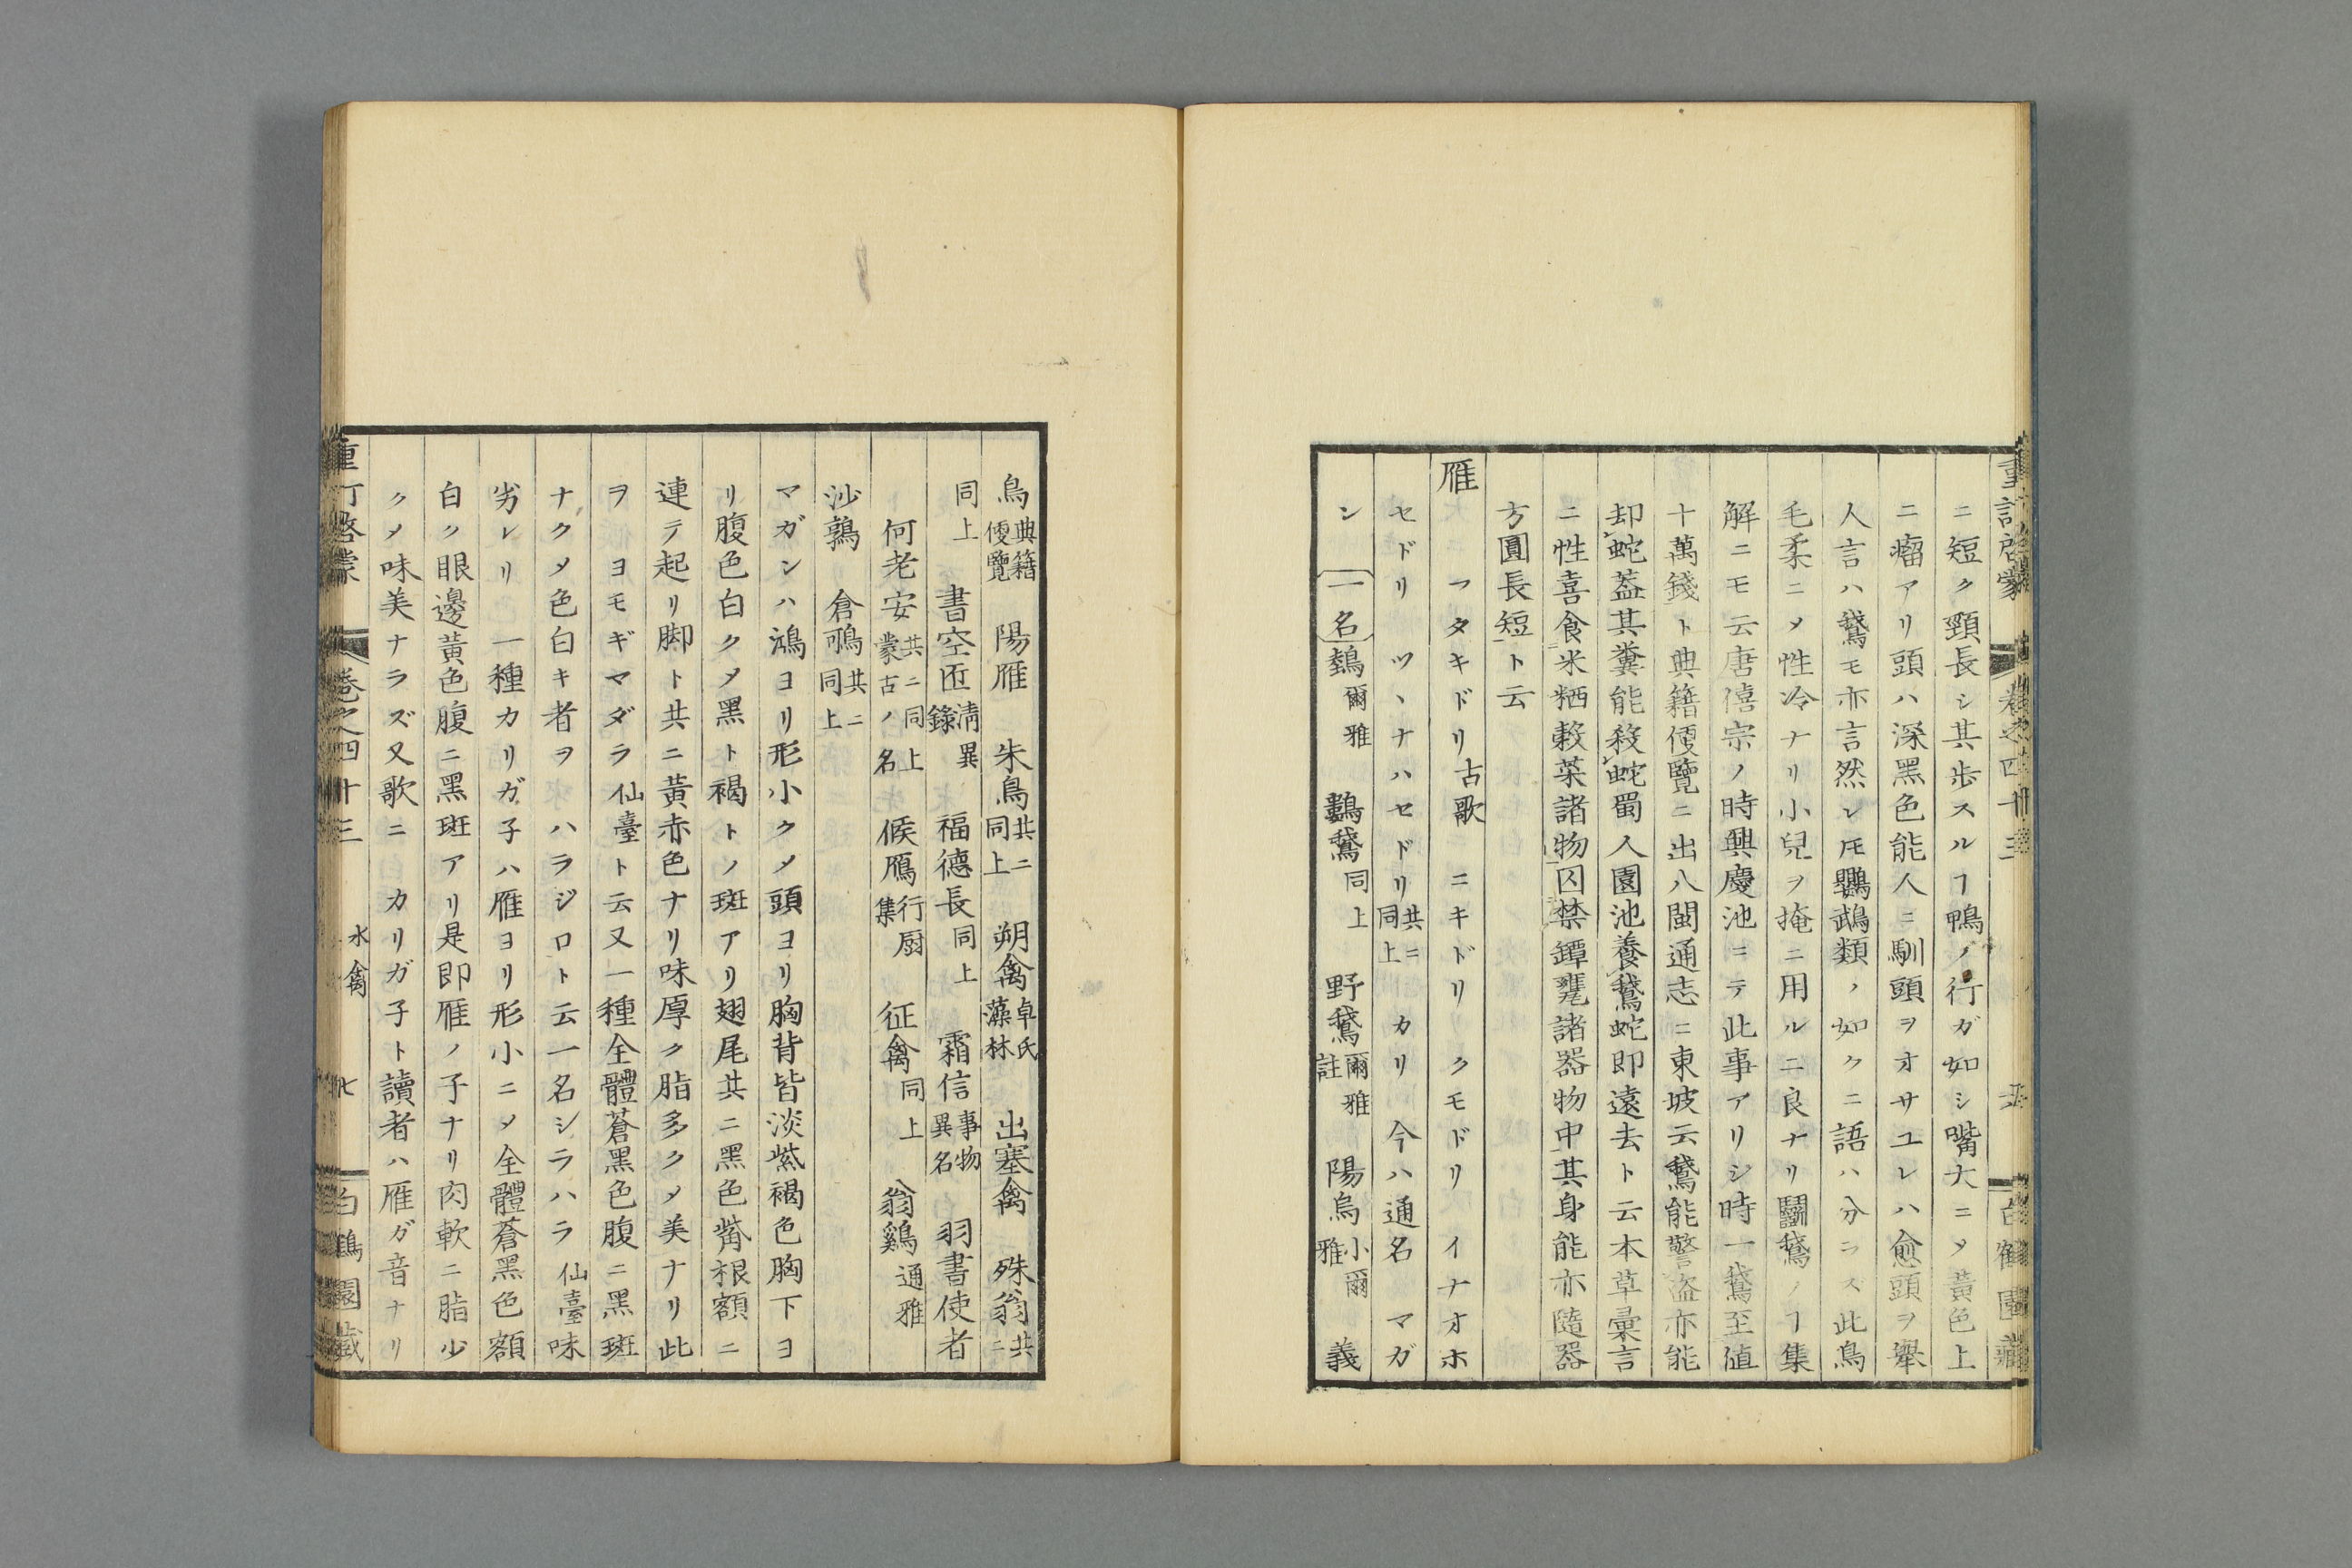 重訂啓蒙 卷之四十三 白鶴園藏
ニ短ク頸長シ其歩スルヿ鴨ノ行ガ如シ嘴大ニメ黃色上
ニ瘤アリ頭ハ深黑色能人ニ馴頭ヲオサユレハ愈頭ヲ舉
人言ハ鵞モ亦言然レ𪜈鸚鵡類ノ如クニ語ハ分ラズ此鳥
毛柔ニメ性冷ナリ小兒ヲ掩ニ用ルニ良ナリ鬭鵞ノヿ集
解ニモ云唐僖宗ノ時興慶池ニテ此事アリシ時一鵞至値
十萬錢ト典籍便覽ニ出八閩通志ニ東坡云鵞能警盗亦能
却蛇葢其糞能殺蛇蜀人園池養鵞蛇即遠去ト云本草彙言
ニ性喜食米粞穀菜諸物囚禁鐔甕諸器物中其身能亦隨器
方圓長短ト云
雁 フタキドリ古歌 ニキドリ クモドリ イナオホ
セドリ ツヽナハセドリ共ニ同上 カリ 今ハ通名 マガ
ン 一名鵱爾雅 鷜鵞同上 野鵞爾雅註 陽烏小爾雅 義
鳥典籍便覽 陽雁 朱鳥共ニ同上 朔禽卓氏藻林 出塞禽 殊翁共ニ
同上 書空匠淸異錄 福德長同上 霜信事物異名 羽書使者
何老安共ニ同上蒙古ノ名 候鴈行厨集 征禽同上 翁鷄通雅
沙鶉 倉鳽共ニ同上
マガンハ鴻ヨリ形小クメ頭ヨリ胸背皆淡紫褐色胸下ヨ
リ腹色白クメ黑ト褐トノ斑アリ翅尾共ニ黑色觜根額ニ
連テ起リ脚ト共ニ黃赤色ナリ味厚ク脂多クメ美ナリ此
ヲ ヨモギマダラ仙臺ト云又一種全體蒼黑色腹ニ黑斑
ナクメ色白キ者ヲ ハラジロト云一名シラハラ仙臺味
劣レリ 一種カリガ子ハ雁ヨリ形小ニメ全體蒼黑色額
白ク眼邊黃色腹ニ黑斑アリ是即雁ノ子ナリ肉軟ニ脂少
クメ味美ナラズ又歌ニ カリガ子ト讀者ハ雁ガ音ナリ
重訂啓蒙 卷之四十三 水禽 七 白鶴園藏